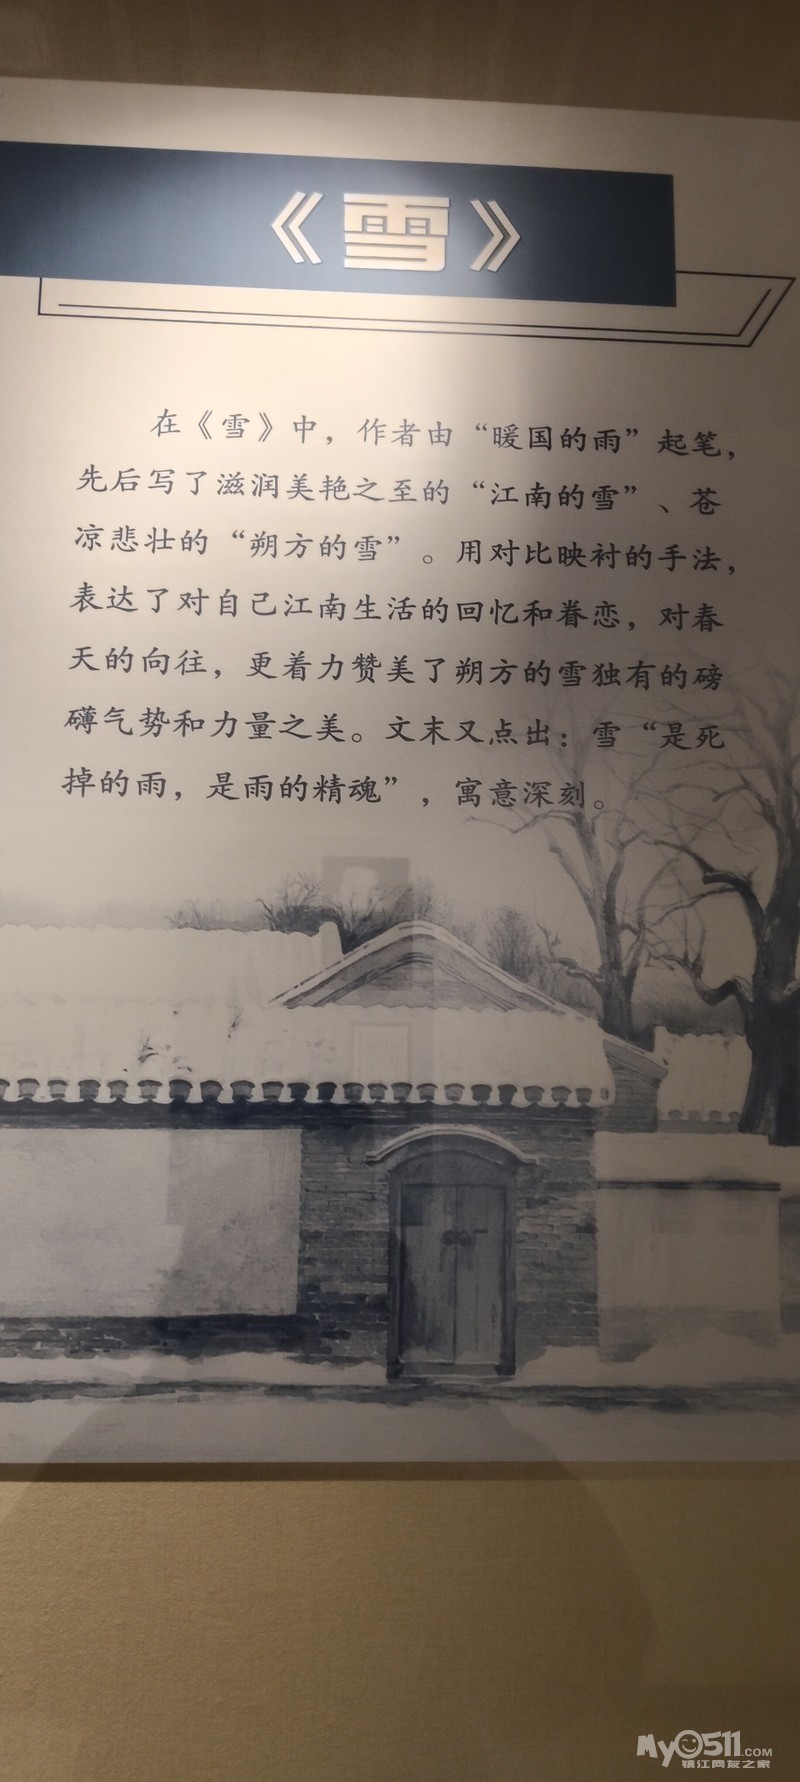 《雪》
在《雪》中，作者由“暖国的雨”起笔，
先后写了滋润美艳之至的“江南的雪”、苍
凉悲壮的“朔方的雪”。用对比映衬的手法，
表达了对自己江南生活的回忆和眷恋，对春
天的向往，更着力赞美了朔方的雪独有的磅
礴气势和力量之美。文末又点出：雪“是死
掉的雨，是雨的精魂”，寓意深刻。
My0511.COM
镇江网友之家